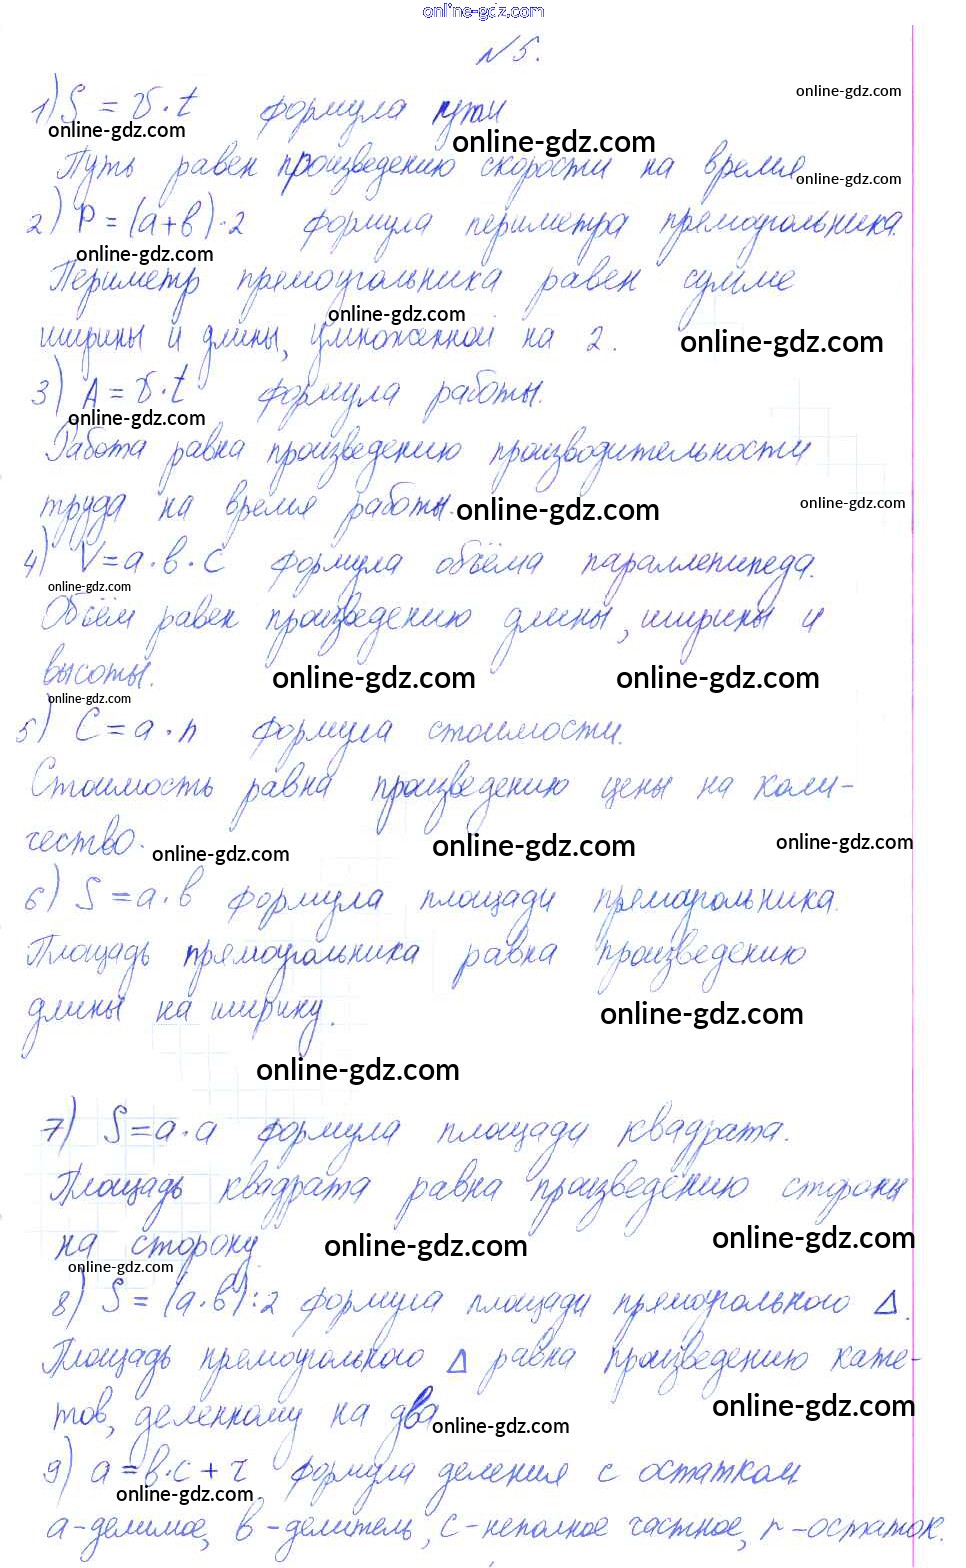 online-gdz.com
№5.
online-gdz.com
1) S = v · t формула пути
online-gdz.com
online-gdz.com
Путь равен произведению скорости на время
online-gdz.com
2) P = (a+b)·2 формула периметра прямоугольника.
online-gdz.com
Периметр прямоугольника равен сумме
online-gdz.com
ширины и длины, умноженной на 2.
online-gdz.com
3) A = v·t формула работы.
online-gdz.com
Работа равна произведению производительности
труда на время работы.
online-gdz.com
online-gdz.com
4) V=a·b·c формула объёма параллепипеда.
online-gdz.com
Объём равен произведению длины, ширины и
высоты.
online-gdz.com online-gdz.com
online-gdz.com
5) C=a·n формула стоимости.
Стоимость равна произведению цены на коли-
чество.
online-gdz.com online-gdz.com online-gdz.com
6) S=a·b формула площади прямоугольника.
Площадь прямоугольника равна произведению
длины на ширину.
online-gdz.com
online-gdz.com
7) S=a·a формула площади квадрата.
Площадь квадрата равна произведению стороны
на сторону
online-gdz.com online-gdz.com
online-gdz.com
8) S=(a·b):2 формула площади прямоугольного Δ.
Площадь прямоугольного Δ равна произведению кате-
тов, деленному на два
online-gdz.com online-gdz.com
9) a=b·c+r формула деления с остатком
online-gdz.com
a-делимое, b-делитель, c-неполное частное, r-остаток.